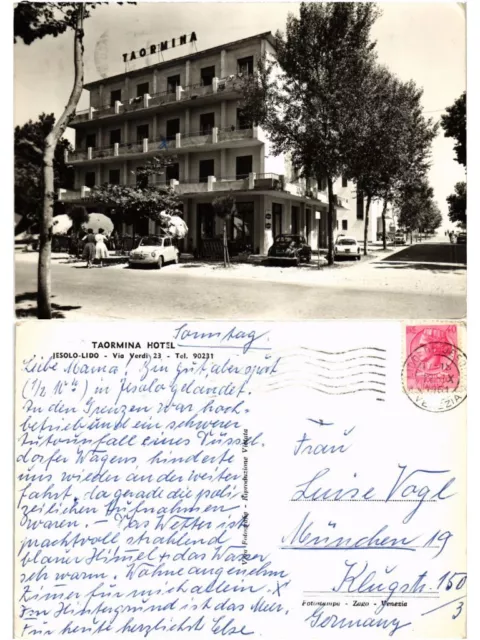 TAORMINA
TAORMINA HOTEL
JESOLO-LIDO - Via Verdi 23 - Tel. 90231
Sonntag.
Liebe Mama! Bin gut, aber spät
(1/2 10h) in Jesolo gelandet.
An den Grenzen war hoch-
betrieb und ein schwerer
Autounfall eines Düssel-
dorfer Wagens hinderte
uns wieder an der Weiter-
fahrt, da gerade die poli-
zeilichen Aufnahmen
waren. - Das Wetter ist
prachtvoll strahlend
blauer Himmel + das Wasser
sehr warm. Wohne angenehm
Zimmer für mich allein. X
Im Hintergrund ist das Meer.
Für heute herzlichst Else
Riproduzione Vietata
Frau
Luise Vogl
München 19
Klugstr. 150/3
Germany
Fotostampa - Zago - Venezia
VENEZIA